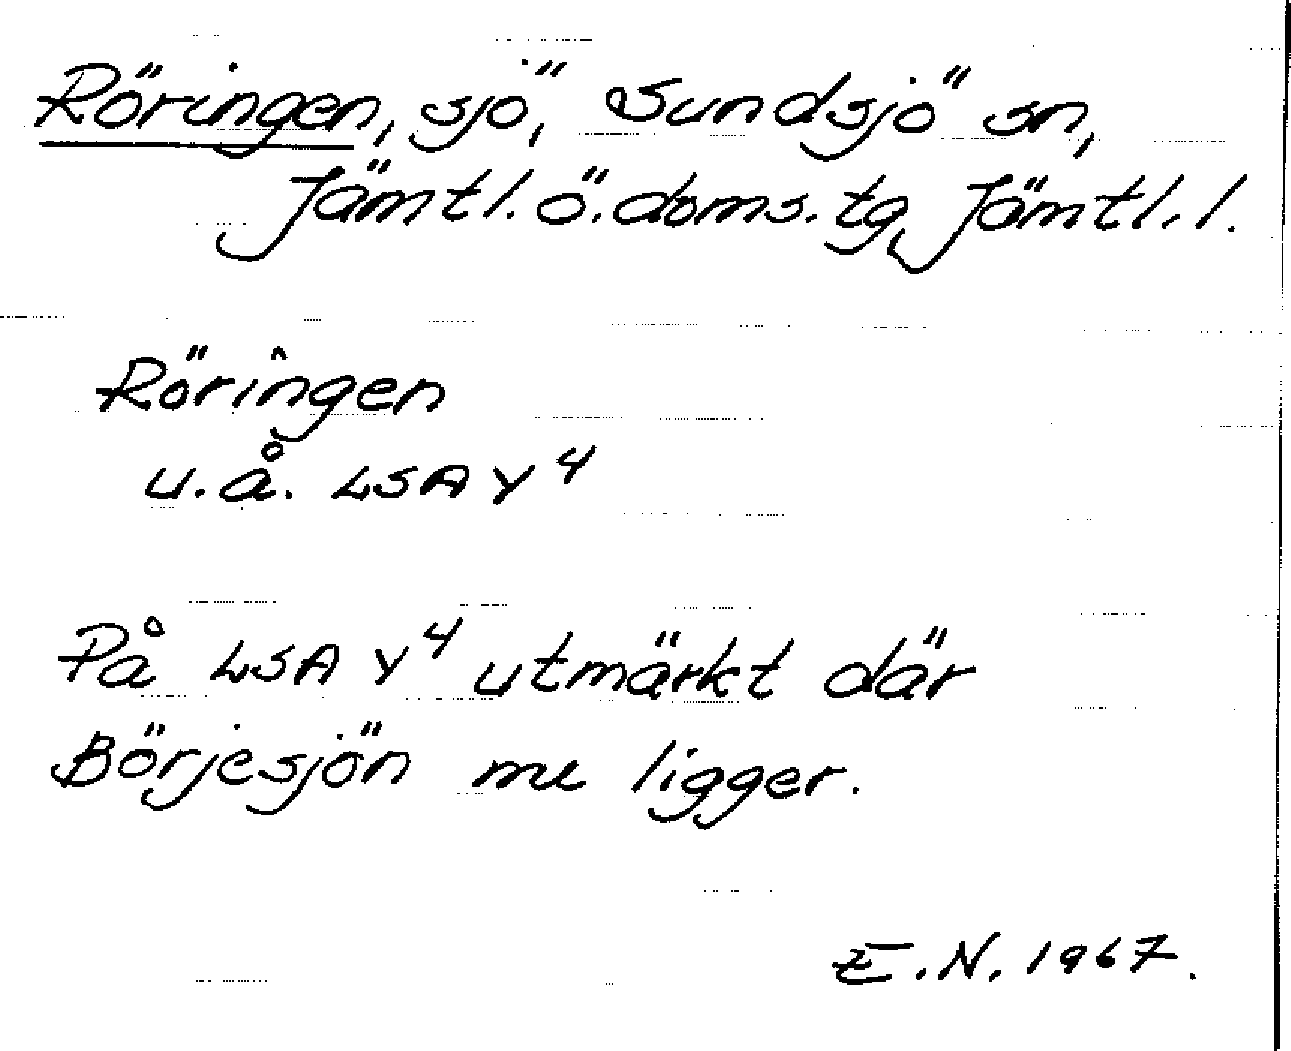 Röringen, sjö, Sundsjö sn,
Jämtl. ö. doms. tg, Jämtl. l.
Röringen
u.å. LSA Y 4
På LSA Y 4 utmärkt där
Börjesjön nu ligger.
E.N. 1967.